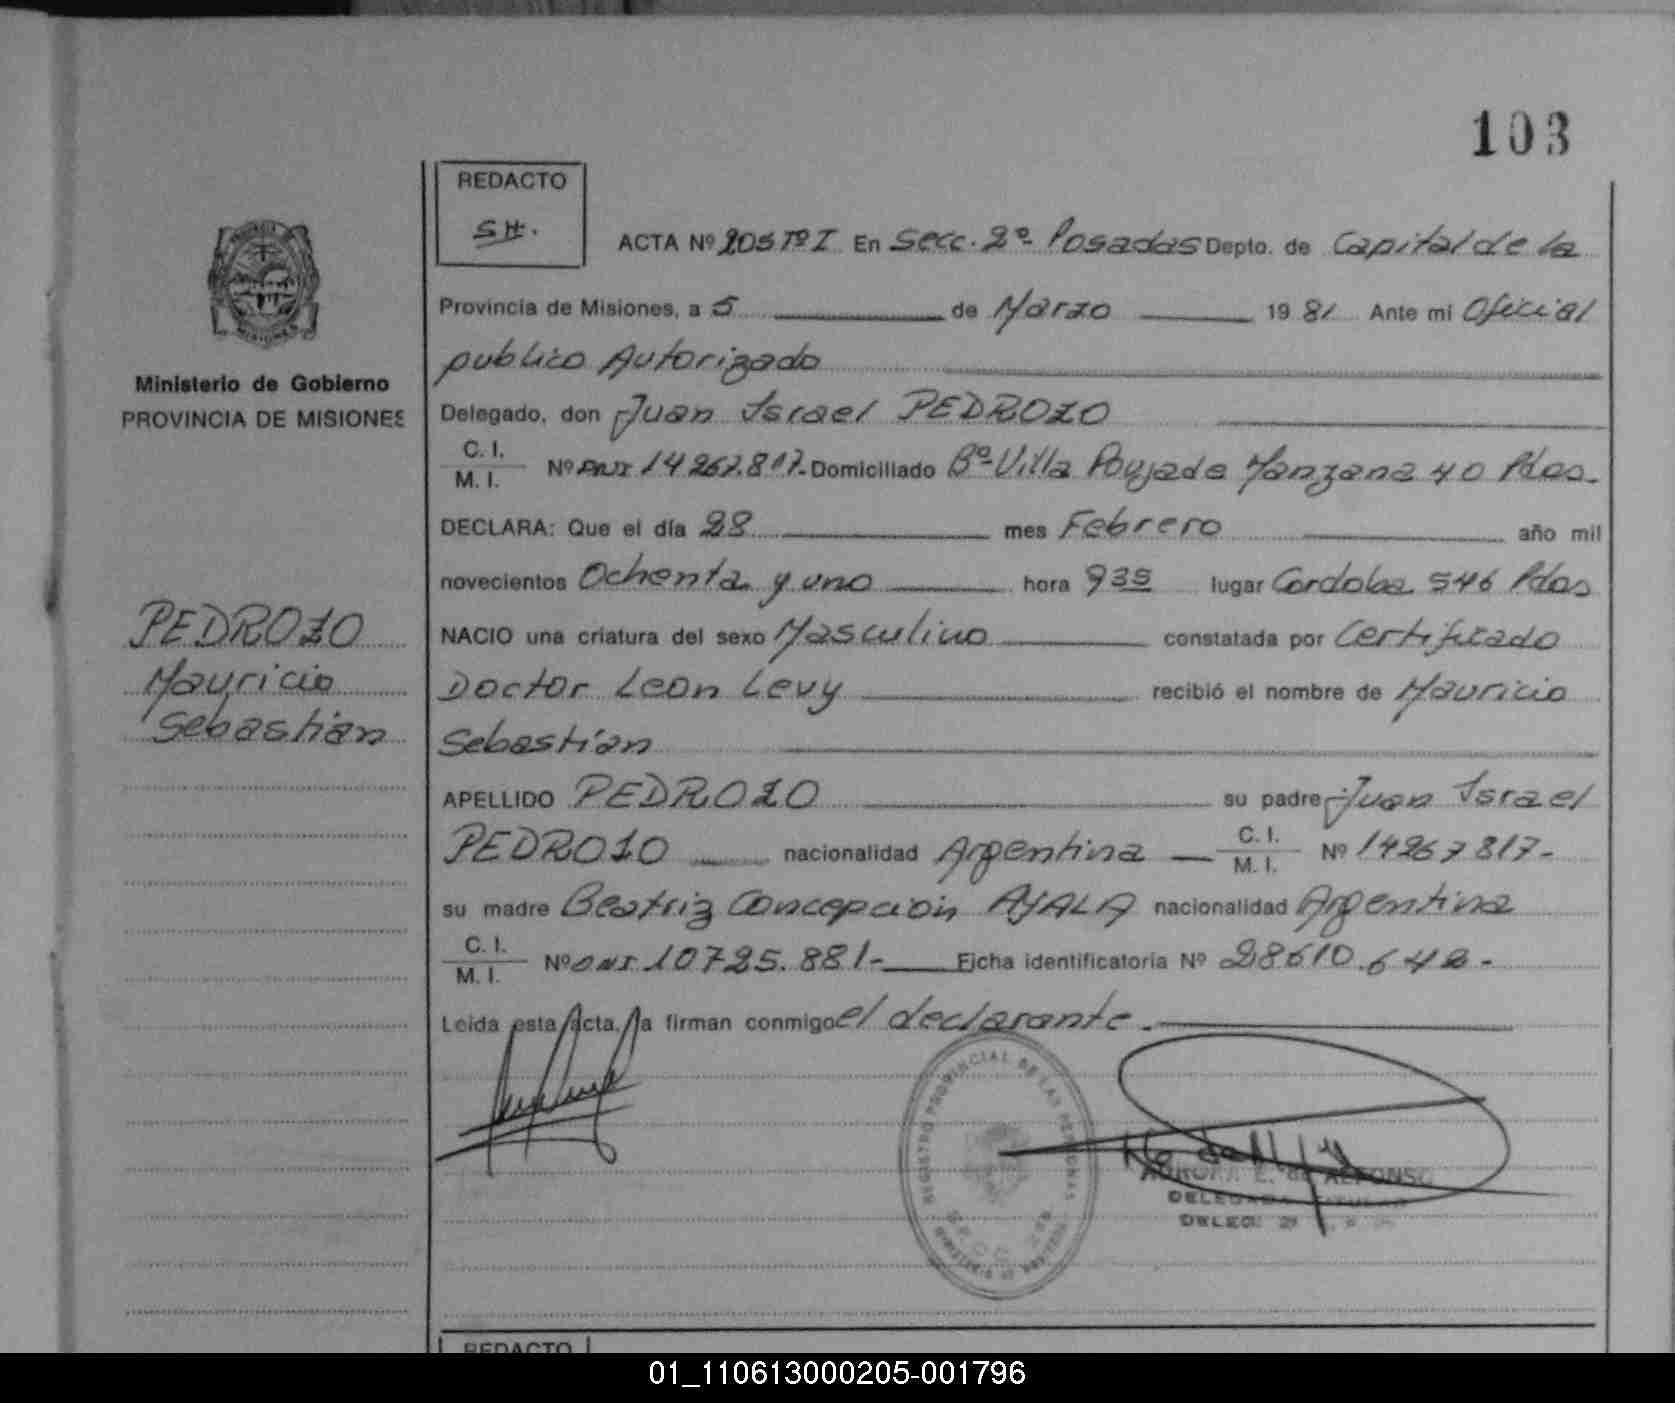 103
REDACTO
SH.
ACTA Nº 205 Tº I En Secc. 2º Posadas Depto. de Capital de la
Provincia de Misiones, a 5 de Marzo 1981 Ante mi Oficial
publico Autorizado
Ministerio de Gobierno
PROVINCIA DE MISIONES
Delegado, don Juan Israel PEDROZO
C. I.
M. I. Nº DNI 14267.817- Domiciliado Bº Villa Poujade Manzana 40 Pdas.
DECLARA: Que el día 28 mes Febrero año mil
novecientos Ochenta y uno hora 935 lugar Cordoba 546 Pdas
PEDROZO
Mauricio
Sebastián
NACIO una criatura del sexo Masculino constatada por Certificado
Doctor Leon Levy recibió el nombre de Mauricio
Sebastián
APELLIDO PEDROZO su padre Juan Israel
PEDROZO nacionalidad Argentina C. I.
M. I. Nº 14267817-
su madre Beatriz Concepción AYALA nacionalidad Argentina
C. I.
M. I. Nº DNI 10725.881- Ficha identificatoria Nº 28610.642-
Leída esta acta, la firman conmigo el declarante.
REGISTRO PROVINCIAL DE LAS PERSONAS
AURORA E. de ALFONSO
DELEGADA TITULAR
REDACTO
01_110613000205-001796